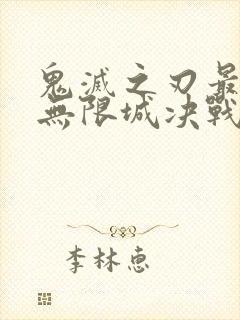 鬼滅之刃最
無限城決戰
李林恵